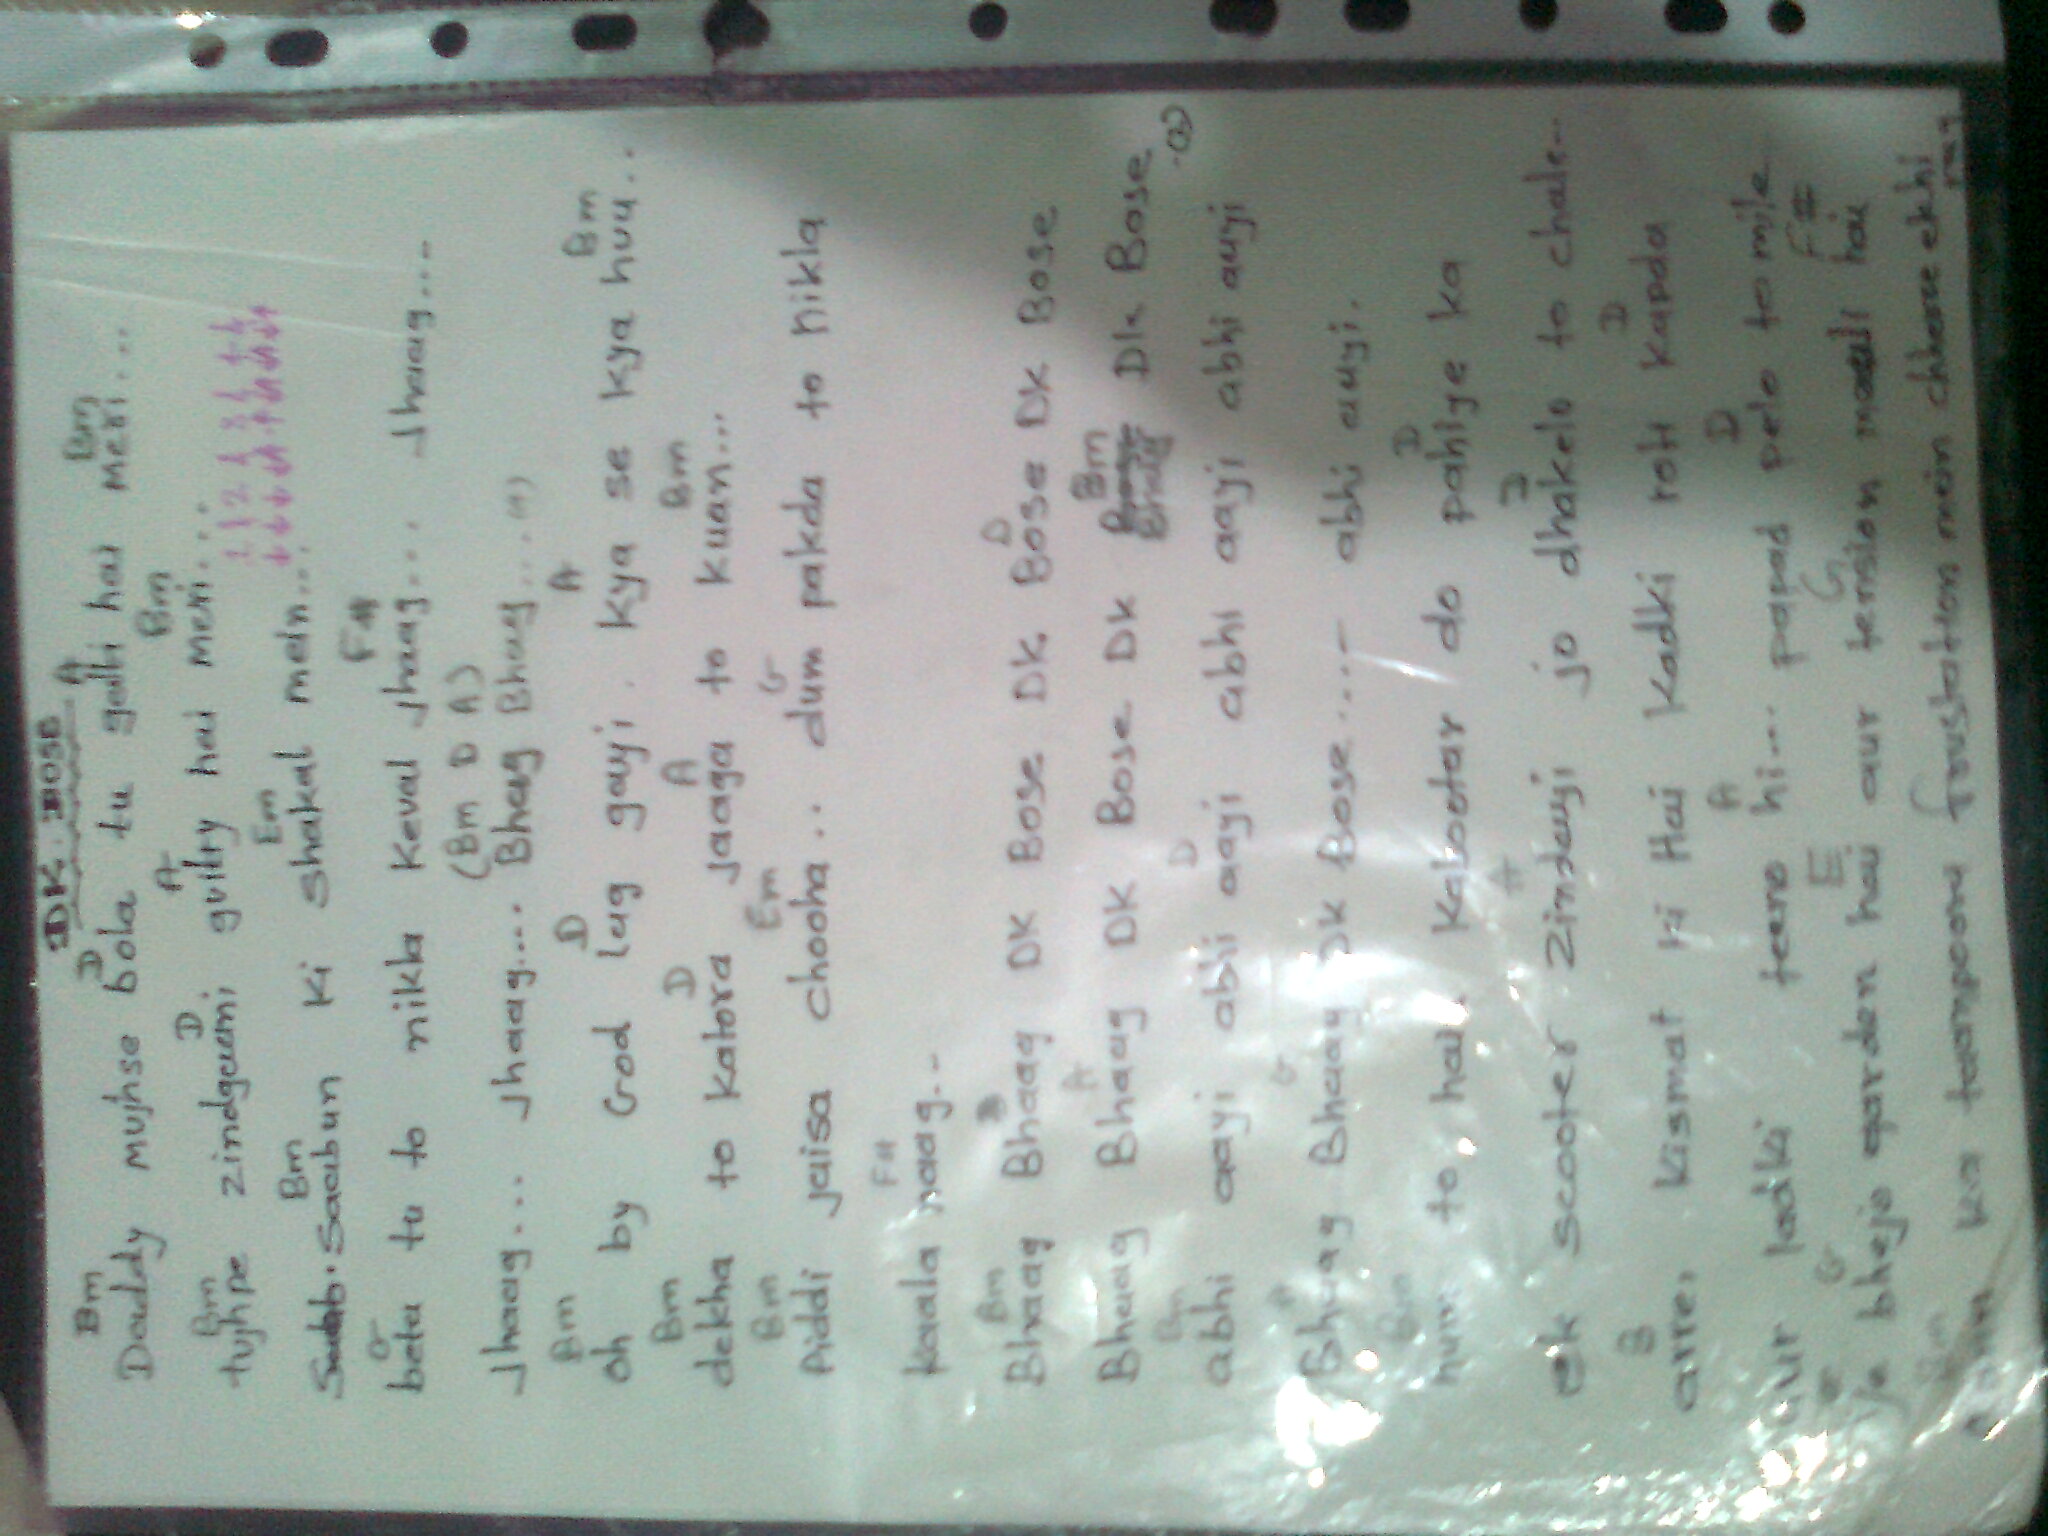 DK. BOSE
Bm D A Bm
Daddy mujhse bola tu galti hai meri...
Bm D A Bm
tujhpe zindgaani guilty hai meri....
1 1 2 1 3 1 1 1
Bm Em
Saabun ki shakal mein...
G F#
beta tu to nikla keval jhaag... Jhaag....
(Bm D A)
Jhaag... Jhaag... Jhaag... Bhaag Bhaag...
Bm D A Bm
Oh by God lag gayi. kya se kya huu..
Bm D A Bm
dekha to katora jaaga to kuan...
Bm Em G
Aiddi jaisa chooha.. dum pakda to nikla
F#
kaala naag..
Bm D
Bhaag Bhaag DK Bose DK Bose DK Bose
A Bm
Bhaag Bhaag DK Bose DK DK Bose
Bm D
abhi aayi abhi aayi abhi aayi abhi aayi
A G
Bhaag Bhaag DK Bose..... abhi aayi.
Bm D
hum to hai kabootar do pahiye ka
A D
ek scooter zindayi jo dhakelo to chale..
B D
arre, kismat ki Hai kadki roti kapda
A D
aur ladki teeno hi... papad pelo to mile
G E G F#
ye bheja garden hai aur tension maali hai
Bm
ka taanpoora frustation mein chheere ekhi
raag